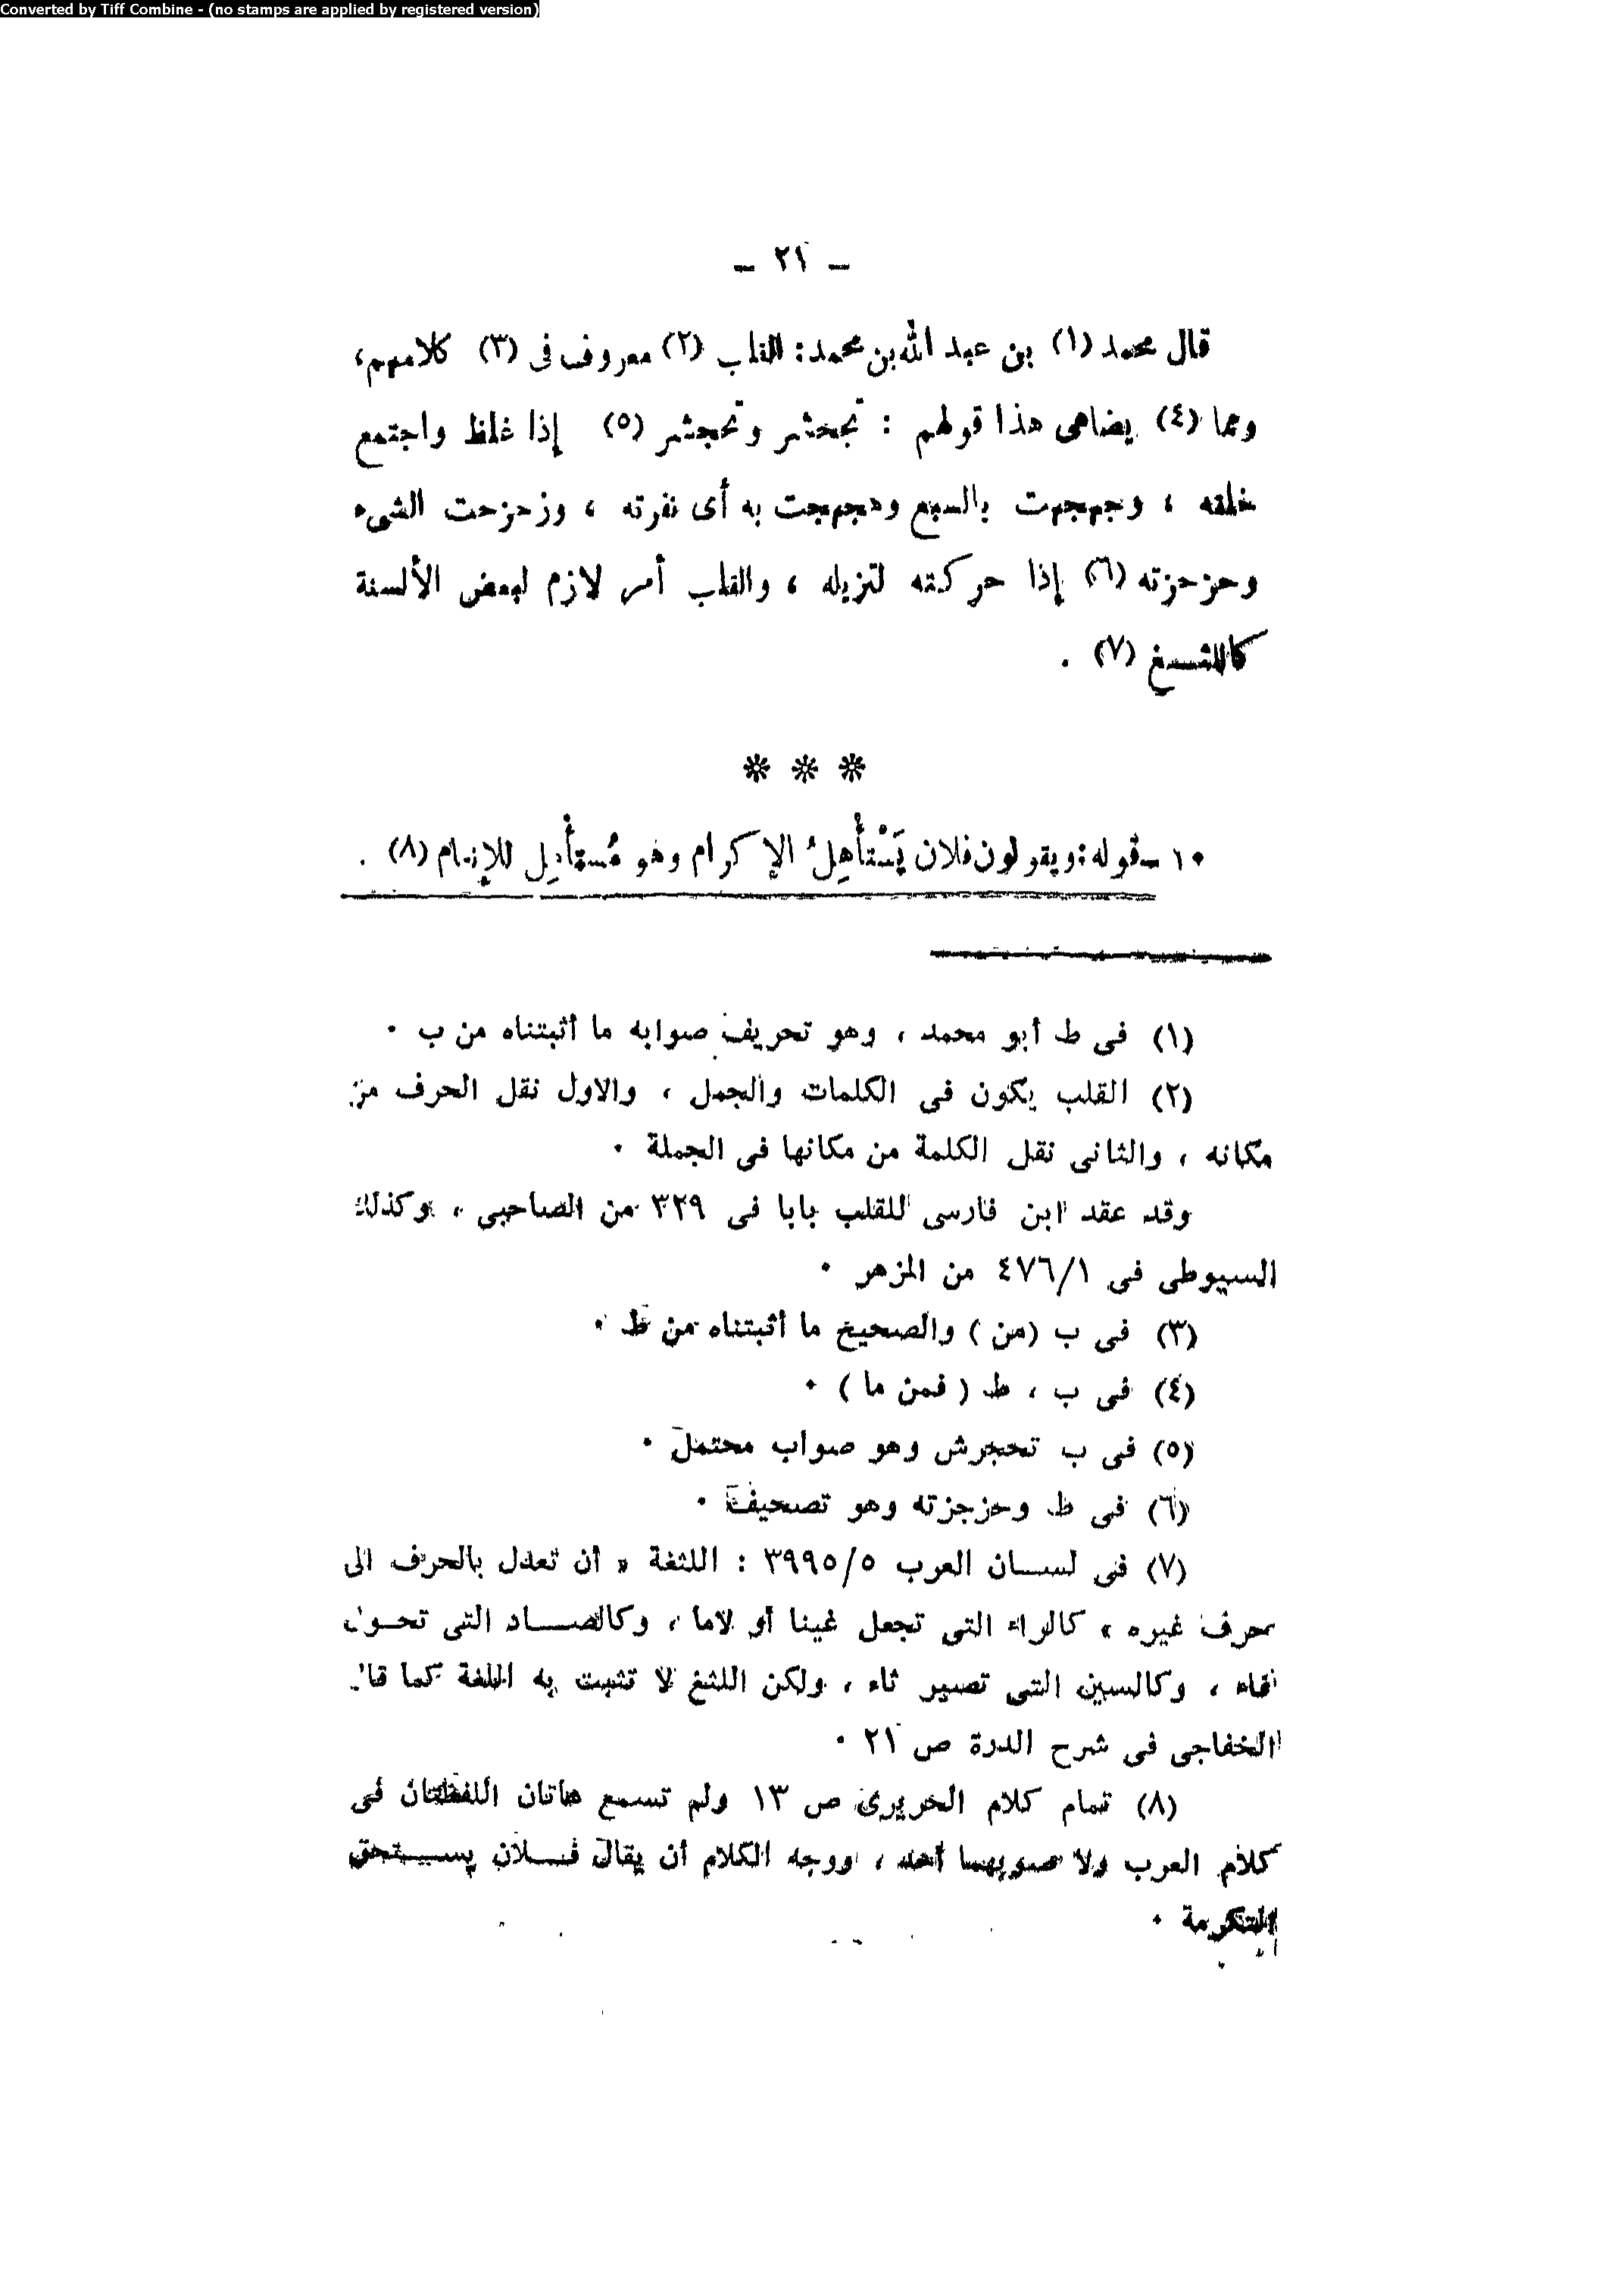 Converted by Tiff Combine - (no stamps are applied by registered version)
— ٢١ —
قال محمد (١) بن عبد الله بن محمد: القلب (٢) معروف فى (٣) كلامهم،
ومما (٤) يضاهى هذا قولهم : تجحشر وتحجشر (٥) إذا غلظ واجتمع
خلقه ، وجهجهت بالسبع وهجهجت به أى نفرته ، وزحزحت الشىء
وحزحزته (٦) إذا حركته لتزيله ، والقلب أمر لازم لبعض الألسنة
كاللثـغ (٧) .
* * *
١٠ - قوله: ويقولون فلان يَسْتَأْهِلُ الإكرام وهو مُستأْهِل للإنعام (٨) .
(١) فى ط أبو محمد ، وهو تحريف صوابه ما أثبتناه من ب .
(٢) القلب يكون فى الكلمات والجمل ، والاول نقل الحرف من
مكانه ، والثانى نقل الكلمة من مكانها فى الجملة .
وقد عقد ابن فارسى للقلب بابا فى ٣٢٩ من الصاحبى ، وكذلك
السيوطى فى ٤٧٦/١ من المزهر .
(٣) فى ب (من) والصحيح ما أثبتناه من ط .
(٤) فى ب ، ط ( فمن ما ) .
(٥) فى ب تحجرش وهو صواب محتمل .
(٦) فى ط وحزجزته وهو تصحيف .
(٧) فى لسـان العرب ٣٩٩٥/٥ : اللثغة « أن تعدل بالحرف الى
حرف غيره » كالراء التى تجعل غينا أو لاما ، وكالصـاد التى تحـول
فاء ، وكالسين التى تصير ثاء ، ولكن اللثغ لا تثبت به اللغة كما قال
الخفاجى فى شرح الدرة ص ٢١ .
(٨) تمام كلام الحريرى ص ١٣ ولم تسمع هاتان اللفظتان فى
كلام العرب ولا صوبهما أحد ، ووجه الكلام أن يقال فـلان يسـتحق
التكرمة .